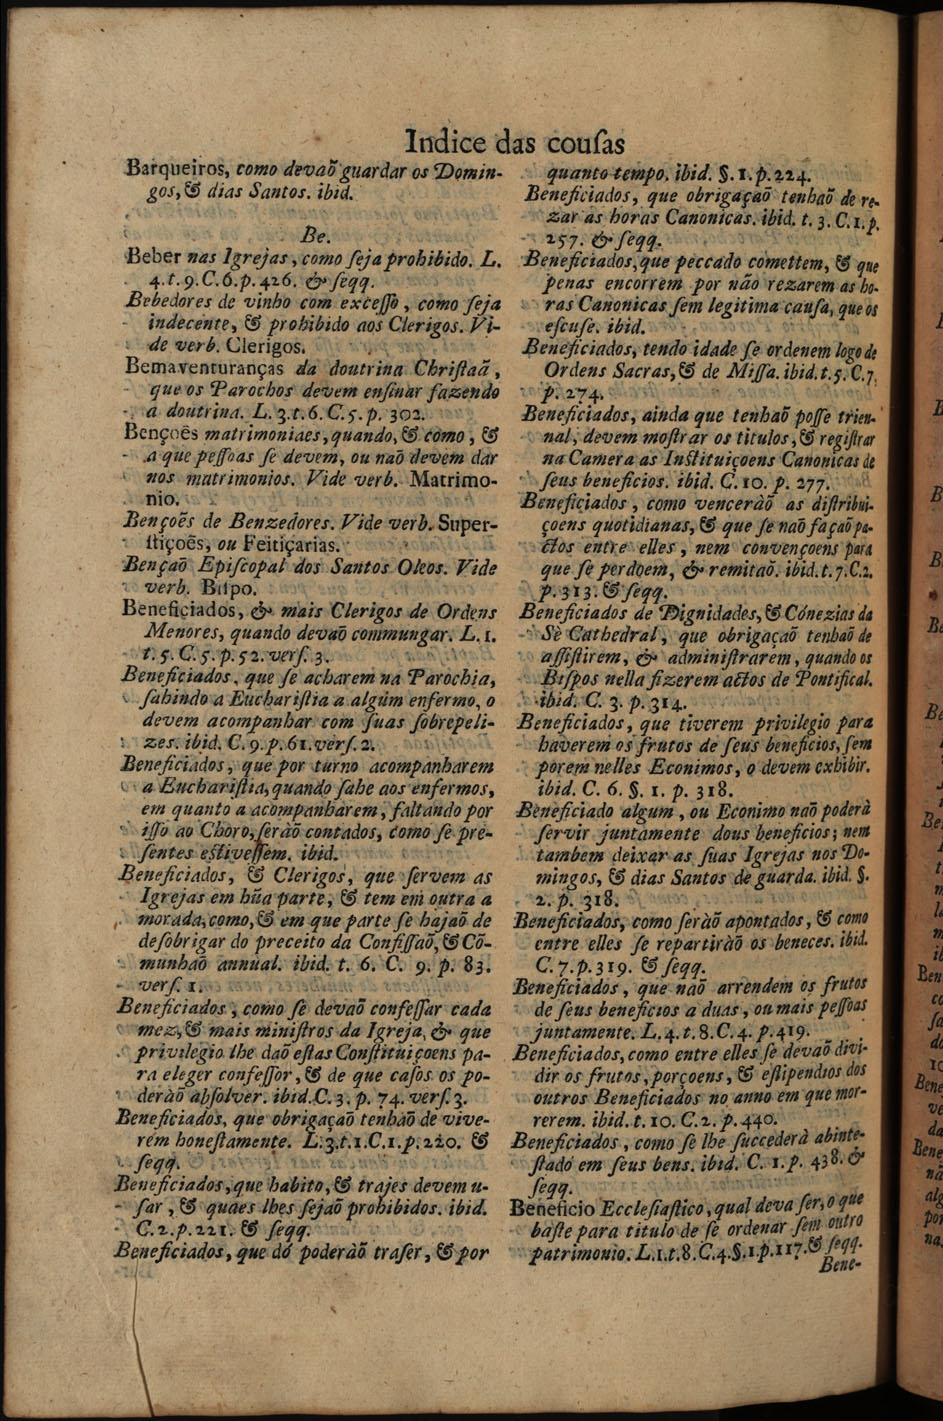 Indice das couſas
Barqueiros, como devaõ guardar os Domin-
gos, & dias Santos. ibid.
Be.
Beber nas Igrejas, como ſeja prohibido. L.
4. t. 9. C. 6. p. 426. & ſeqq.
Bebedores de vinho com exceſſo, como ſeja
indecente, & prohibido aos Clerigos. Vi-
de verb. Clerigos.
Bemaventuranças da doutrina Chriſtaã,
que os Parochos devem enſinar fazendo
a doutrina. L. 3. t. 6. C. 5. p. 302.
Bençoẽs matrimoniaes, quando, & como, &
a que peſſoas ſe devem, ou naõ devem dar
nos matrimonios. Vide verb. Matrimo-
nio.
Bençoẽs de Benzedores. Vide verb. Super-
ſtiçoẽs, ou Feitiçarias.
Bençaõ Epiſcopal dos Santos Oleos. Vide
verb. Biſpo.
Beneficiados, & mais Clerigos de Ordens
Menores, quando devaõ commungar. L. 1.
t. 5. C. 5. p. 52. verſ. 3.
Beneficiados, que ſe acharem na Parochia,
ſahindo a Euchariſtia a algúm enfermo, o
devem acompanhar com ſuas ſobrepeli-
zes. ibid. C. 9. p. 61. verſ. 2.
Beneficiados, que por turno acompanharem
a Euchariſtia, quando ſahe aos enfermos,
em quanto a acompanharem, faltando por
iſſo ao Choro, ſeràõ contados, como ſe pre-
ſentes eſtiveſſem. ibid.
Beneficiados, & Clerigos, que ſervem as
Igrejas em hũa parte, & tem em outra a
morada, como, & em que parte ſe hajaõ de
deſobrigar do preceito da Confiſſaõ, & Cõ-
munhaõ annual. ibid. t. 6. C. 9. p. 83.
verſ. 1.
Beneficiados, como ſe devaõ confeſſar cada
mez, & mais miniſtros da Igreja, & que
privilegio lhe daõ eſtas Conſtituiçoens pa-
ra eleger confeſſor, & de que caſos os po-
deràõ abſolver. ibid. C. 3. p. 74. verſ. 3.
Beneficiados, que obrigaçaõ tenhaõ de vive-
rem honeſtamente. L. 3. t. 1. C. 1. p. 220. &
ſeqq.
Beneficiados, que habito, & trajes devem u-
ſar, & quaes lhes ſejaõ prohibidos. ibid.
C. 2. p. 221. & ſeqq.
Beneficiados, que dó poderàõ traſer, & por
quanto tempo. ibid. §. 1. p. 224.
Beneficiados, que obrigaçaõ tenhaõ de re-
zar as horas Canonicas. ibid. t. 3. C. 1. p.
257. & ſeqq.
Beneficiados, que peccado comettem, & que
penas encorrem por não rezarem as ho-
ras Canonicas ſem legitima cauſa, que os
eſcuſe. ibid.
Beneficiados, tendo idade ſe ordenem logo de
Ordens Sacras, & de Miſſa. ibid. t. 5. C. 7.
p. 274.
Beneficiados, ainda que tenhaõ poſſe trien-
nal, devem moſtrar os titulos, & regiſtrar
na Camera as Inſtituiçoens Canonicas de
ſeus beneficios. ibid. C. 10. p. 277.
Beneficiados, como venceràõ as diſtribui-
çoens quotidianas, & que ſe naõ façaõ pa-
ctos entre elles, nem convençoens para
que ſe perdoem, & remitaõ. ibid. t. 7. C. 2.
p. 313. & ſeqq.
Beneficiados de Dignidades, & Cónezias da
Sè Cathedral, que obrigaçaõ tenhaõ de
aſſiſtirem, & adminiſtrarem, quando os
Biſpos nella fizerem actos de Pontifical.
ibid. C. 3. p. 314.
Beneficiados, que tiverem privilegio para
haverem os frutos de ſeus beneficios, ſem
porem nelles Econimos, o devem exhibir.
ibid. C. 6. §. 1. p. 318.
Beneficiado algum, ou Econimo naõ poderà
ſervir juntamente dous beneficios; nem
tambem deixar as ſuas Igrejas nos Do-
mingos, & dias Santos de guarda. ibid. §.
2. p. 318.
Beneficiados, como ſeràõ apontados, & como
entre elles ſe repartiràõ os beneces. ibid.
C. 7. p. 319. & ſeqq.
Beneficiados, que naõ arrendem os frutos
de ſeus beneficios a duas, ou mais peſſoas
juntamente. L. 4. t. 8. C. 4. p. 419.
Beneficiados, como entre elles ſe devaõ divi-
dir os frutos, porçoens, & eſtipendios dos
outros Beneficiados no anno em que mor-
rerem. ibid. t. 10. C. 2. p. 440.
Beneficiados, como ſe lhe ſuccederà abinte-
ſtadó em ſeus bens. ibid. C. 1. p. 438. &
ſeqq.
Beneficio Eccleſiaſtico, qual deva ſer, o que
baſte para titulo de ſe ordenar ſem outro
patrimonio. L. 1. t. 8. C. 4. §. 1. p. 117. & ſeqq.
Bene-